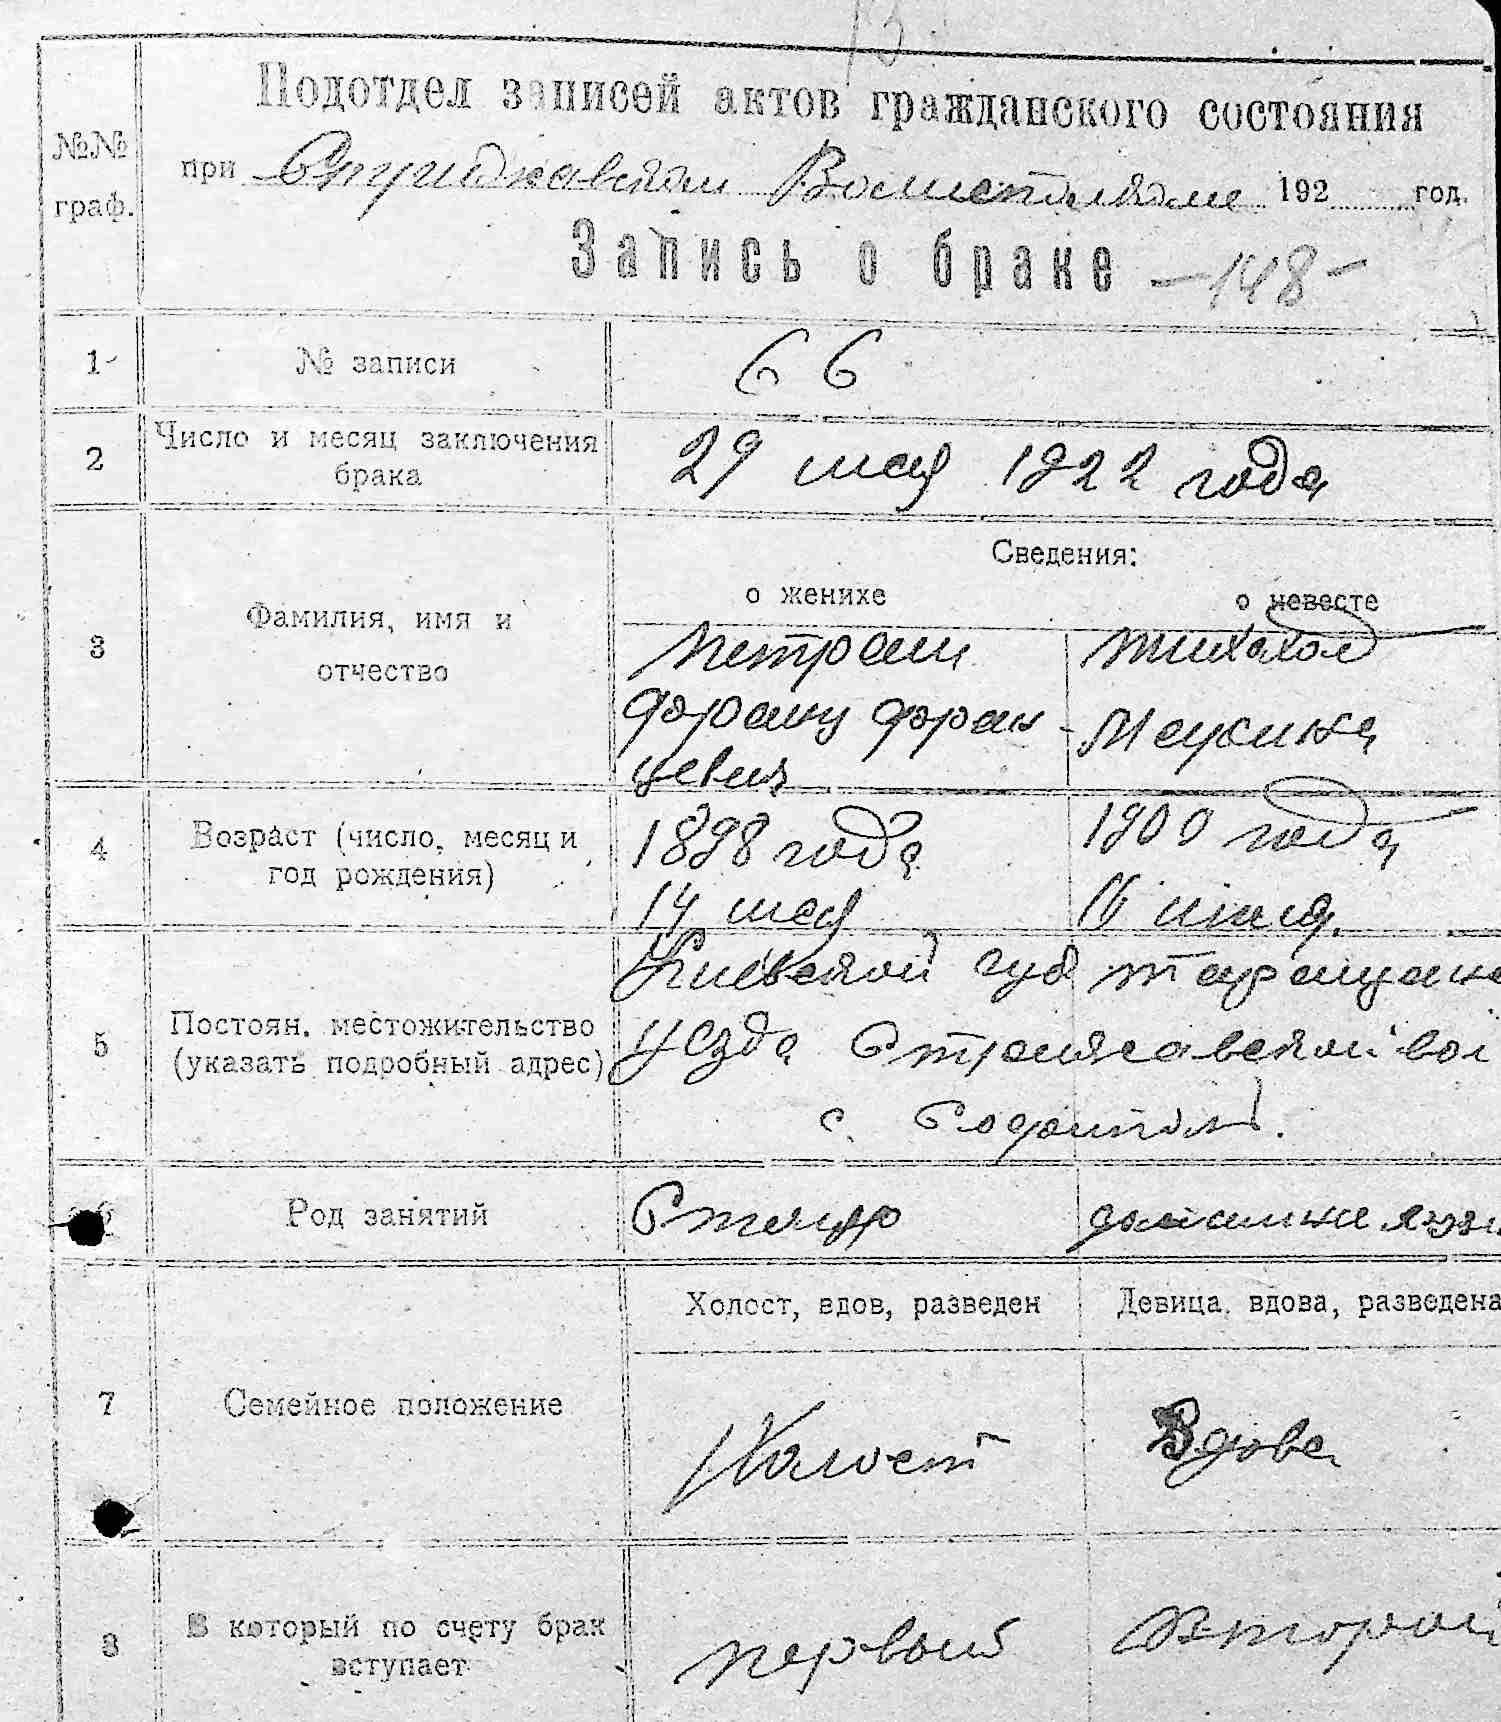 13
Подотдел записей актов гражданского состояния
№№ граф.
при Стрижавском 192 год.
Запись о браке -148-
1 № записи 66
2 Число и месяц заключения брака
29 мая 1922 года
Сведения:
о женихе о невесте
3 Фамилия, имя и отчество
Франц Фран-
цевич
4 Возраст (число, месяц и год рождения)
1898 года 1900 года
14 мая 16
5 Постоян. местожительство (указать подробный адрес)
Киевской губ Таращанс
уезда вол
с.
6 Род занятий
7 Семейное положение
Холост, вдов, разведен Девица, вдова, разведена
Холост Вдова
8 В который по счету брак вступает
первый Второй